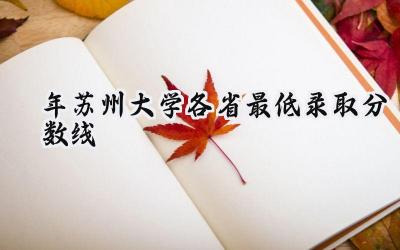 年苏州大学各省最低录取分
数线